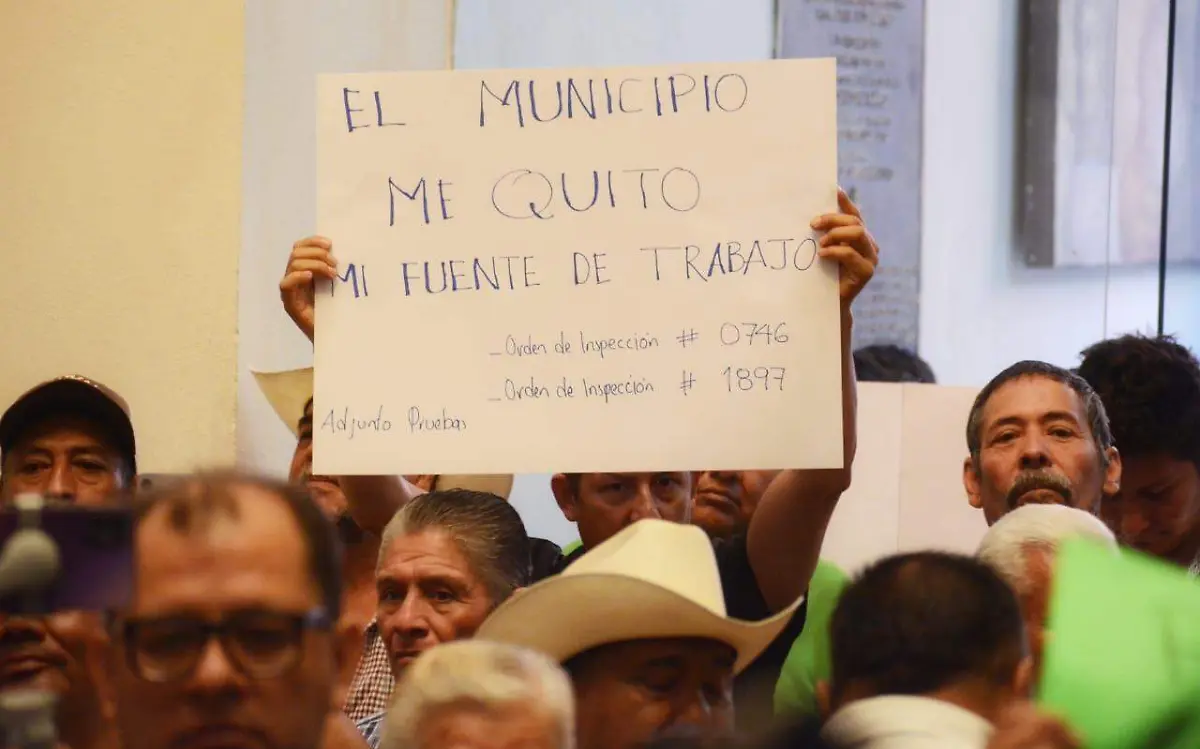 EL MUNICIPIO
ME QUITO
MI FUENTE DE TRABAJO
_Orden de Inspección # 0746
_Orden de Inspección # 1897
Adjunto Pruebas